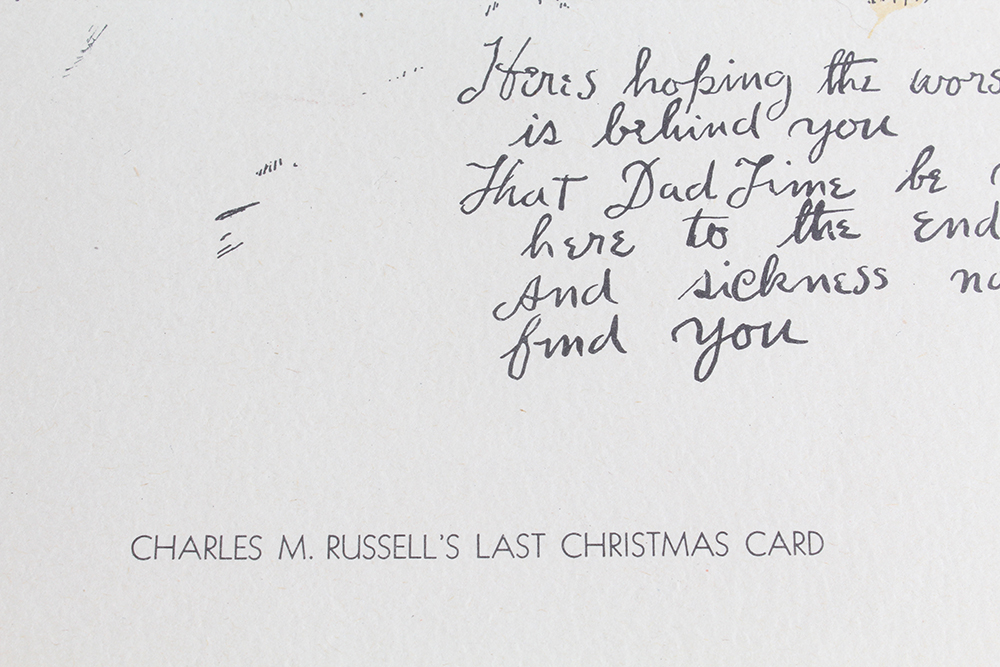 Heres hoping the wors
is behind you
That Dad Time be
here to the end
And sickness
find you
CHARLES M. RUSSELL'S LAST CHRISTMAS CARD